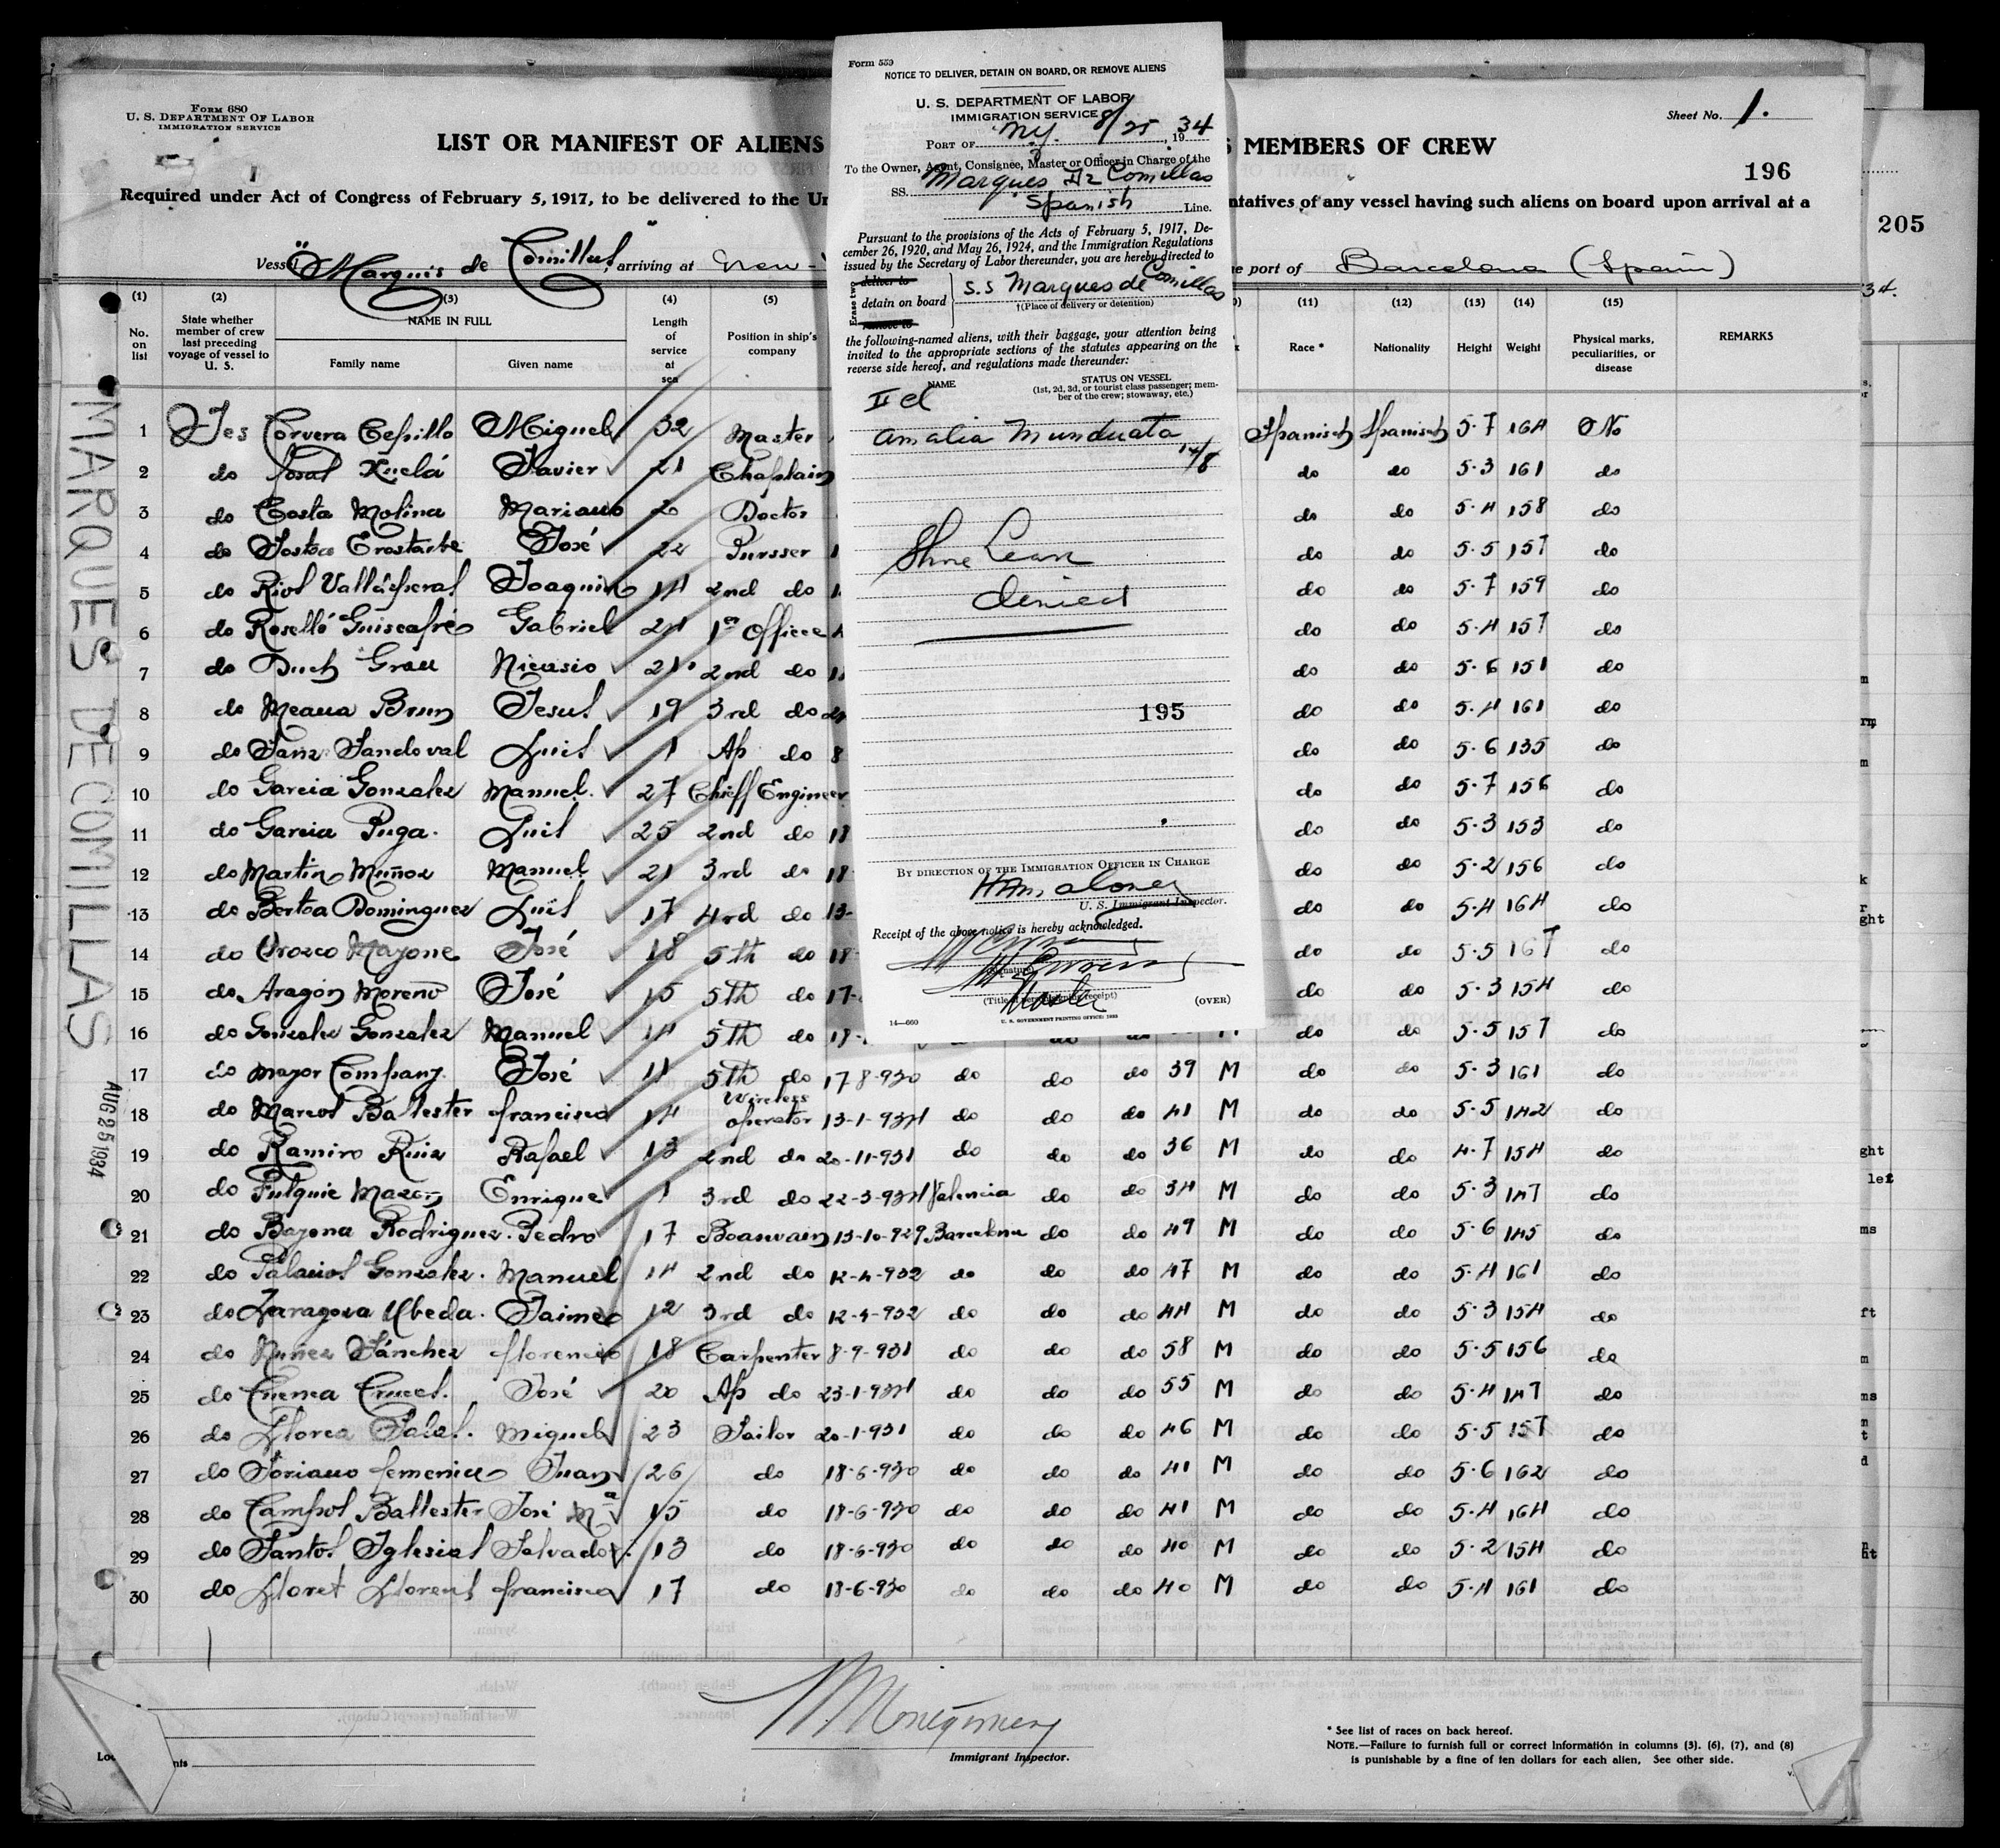 Form 680
U. S. Department Of Labor
IMMIGRATION SERVICE
Sheet No. 1.
LIST OR MANIFEST OF ALIENS
S MEMBERS OF CREW
196
Required under Act of Congress of February 5, 1917, to be delivered to the Un
ntatives of any vessel having such aliens on board upon arrival at a
205
Vessel "Marquis de Comillas", arriving at New-
e port of Barcelona (Spain)
34.
(1) (2) (3) (4) (5) (11) (12) (13) (14) (15)
No. on list
State whether member of crew last preceding voyage of vessel to U. S.
NAME IN FULL
Family name Given name
Length of service at sea
Position in ship's company
Race * Nationality Height Weight
Physical marks, peculiarities, or disease
REMARKS
1 Yes Corvera Cepillo Miguel 32 Master Spanish Spanish 5-7 164 No
2 do Rosal Xuclá Javier 21 Chaplain do do 5-3 161 do
3 do Costa Molina Mariano 2 Doctor do do 5-4 158 do
4 do José 22 Pursser do do 5-5 157 do
5 do Riol Joaquin 14 2nd do do do 5-7 159 do
6 do Roselló Guiscafré Gabriel 24 1er Officer do do 5-4 157 do
7 do Duch Grau Nicasio 21 2nd do do do 5-6 151 do
8 do Meana Brun Jesus 19 3rd do do do 5-4 161 do
9 do Sanz Sandoval Luis 1 Ap do 8 do do 5-6 135 do
10 do Garcia Gonzalez Manuel 27 Chieff Engineer do do 5-7 156 do
11 do Garcia Puga Luis 25 2nd do 18 do do 5-3 153 do
12 do Martin Muñoz Manuel 21 3rd do 18 do do 5-2 156 do
13 do Bertoa Dominguez Luis 17 4rd do 13- do do 5-4 164 do
14 do Orozco Mayone José 18 5th do 18- do do 5-5 167 do
15 do Aragón Moreno José 15 5th do 17- do do 5-3 154 do
16 do Gonzalez Gonzalez Manuel 14 5th do 18- M do do 5-5 157 do
17 do Mayor Company José 11 5th do 17-8-930 do do do 39 M do do 5-3 161 do
18 do Marcos Ballester Francisco 14 Wireless operator 13-1-934 do do do 41 M do do 5-5 142 do
19 do Ramiro Ruiz Rafael 13 2nd do 20-11-931 do do do 36 M do do 4-7 154 do
20 do Enrique 1 3rd do 22-3-934 Valencia do do 34 M do do 5-3 147 do
21 do Bayona Rodriguez Pedro 17 Boaswain 13-10-929 Barcelona do do 49 M do do 5-6 145 do
22 do Palacios Gonzalez Manuel 14 2nd do 12-4-932 do do do 47 M do do 5-4 161 do
23 do Zaragoza Ubeda Jaime 12 3rd do 12-4-932 do do do 44 M do do 5-3 154 do
24 do Nuñez Sánchez Florencio 18 Carpenter 8-9-931 do do do 58 M do do 5-5 156 do
25 do Cuenca Cruces José 20 Ap do 23-1-934 do do do 55 M do do 5-4 147 do
26 do Llorca Miguel 23 Sailor 20-1-931 do do do 46 M do do 5-5 157 do
27 do Soriano Femenia Juan 26 do 18-6-930 do do do 41 M do do 5-6 162 do
28 do Campos Ballester José Mª 15 do 18-6-930 do do do 41 M do do 5-4 164 do
29 do Santos Iglesias Salvador 13 do 18-6-930 do do do 40 M do do 5-2 154 do
30 do Lloret Llorens Francisco 17 do 18-6-930 do do do 40 M do do 5-4 161 do
MARQUES DE COMILLAS
AUG 25 1934
Form 559
NOTICE TO DELIVER, DETAIN ON BOARD, OR REMOVE ALIENS
U. S. DEPARTMENT OF LABOR
IMMIGRATION SERVICE
Port of N.Y. 8/25, 1934
To the Owner, Agent, Consignee, Master or Officer in Charge of the
SS. Marques De Comillas
Spanish Line.
Pursuant to the provisions of the Acts of February 5, 1917, De-
cember 26, 1920, and May 26, 1924, and the Immigration Regulations
issued by the Secretary of Labor thereunder, you are hereby directed to
Erase two
deliver to
detain on board
remove to
S.S Marques de Comillas
†(Place of delivery or detention)
the following-named aliens, with their baggage, your attention being
invited to the appropriate sections of the statutes appearing on the
reverse side hereof, and regulations made thereunder:
NAME
STATUS ON VESSEL
(1st, 2d, 3d, or tourist class passenger; mem-
ber of the crew; stowaway, etc.)
II cl
Amalia Munduata
14/8
Shore Leave
denied
195
By direction of the Immigration Officer in Charge
U. S. Immigrant Inspector.
Receipt of the above notice is hereby acknowledged.
(Signature)
Master
(Title of person signing receipt)
(OVER)
14—660
U. S. GOVERNMENT PRINTING OFFICE: 1933
Montgomery
Immigrant Inspector.
* See list of races on back hereof.
Note.—Failure to furnish full or correct information in columns (3), (6), (7), and (8)
is punishable by a fine of ten dollars for each alien. See other side.